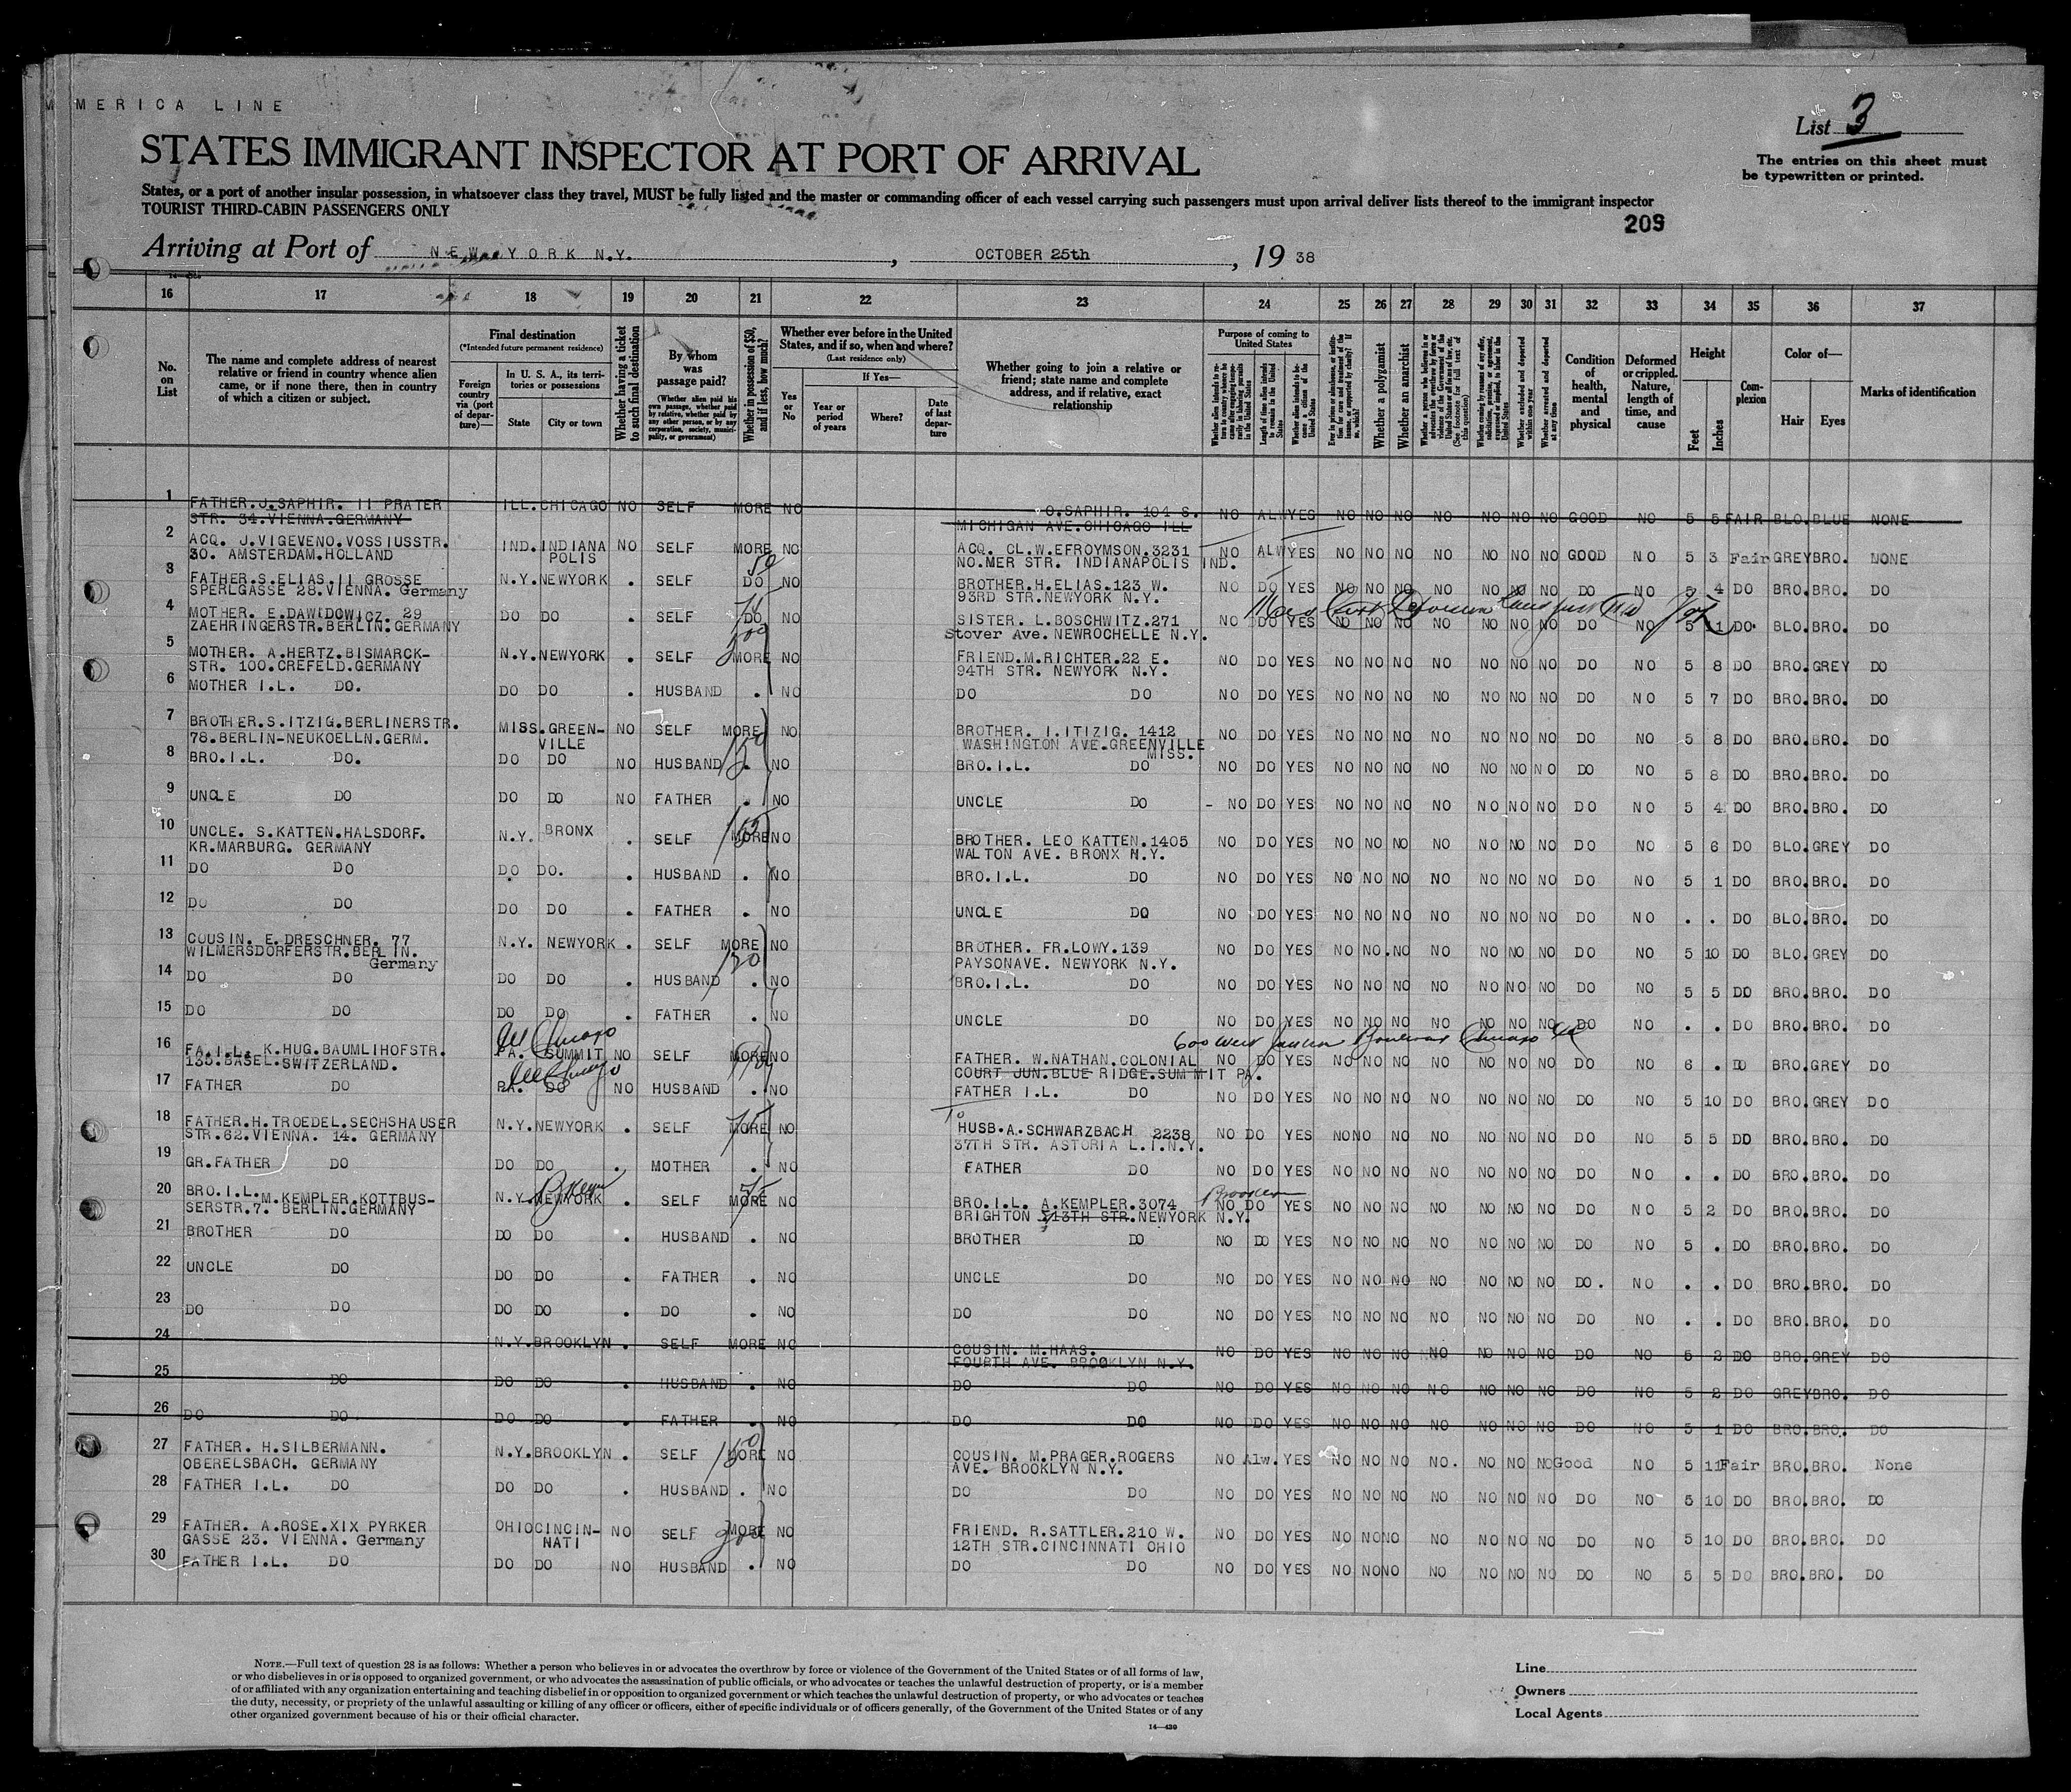 MERICA LINE
List 3
STATES IMMIGRANT INSPECTOR AT PORT OF ARRIVAL
The entries on this sheet must
be typewritten or printed.
States, or a port of another insular possession, in whatsoever class they travel, MUST be fully listed and the master or commanding officer of each vessel carrying such passengers must upon arrival deliver lists thereof to the immigrant inspector
TOURIST THIRD-CABIN PASSENGERS ONLY
209
Arriving at Port of NEW YORK N.Y. , OCTOBER 25th , 19 38
16 17 18 19 20 21 22 23 24 25 26 27 28 29 30 31 32 33 34 35 36 37
No. on List
The name and complete address of nearest relative or friend in country whence alien came, or if none there, then in country of which a citizen or subject.
Final destination
(*Intended future permanent residence)
Foreign country via (port of departure)—
In U. S. A., its territories or possessions
State City or town
Whether having a ticket to such final destination
By whom was passage paid?
(Whether alien paid his own passage, whether paid by relative, whether paid by any other person, or by any corporation, society, municipality, or government)
Whether in possession of $50, and if less, how much?
Whether ever before in the United States, and if so, when and where?
(Last residence only)
Yes or No
If Yes—
Year or period of years
Where?
Date of last departure
Whether going to join a relative or friend; state name and complete address, and if relative, exact relationship
Purpose of coming to United States
Whether a polygamist
Whether an anarchist
Condition of health, mental and physical
Deformed or crippled. Nature, length of time, and cause
Height
Feet Inches
Complexion
Color of—
Hair Eyes
Marks of identification
1 FATHER.J.SAPHIR. II PRATER ILL. CHICAGO NO SELF MORE NO O.SAPHIR. 104 S. NO ALW YES NO NO NO NO NO NO NO GOOD NO 5 5 FAIR BLO. BLUE NONE
STR. 34.VIENNA.GERMANY MICHIGAN AVE.CHICAGO ILL
2 ACQ. J.VIGEVENO.VOSSIUSSTR. IND. INDIANA NO SELF MORE NO ACQ. CL.W.EFROYMSON.3231 NO ALW YES NO NO NO NO NO NO NO GOOD NO 5 3 Fair GREY BRO. NONE
30. AMSTERDAM.HOLLAND POLIS NO.MER STR. INDIANAPOLIS IND.
3 FATHER.S.ELIAS.II GROSSE N.Y. NEWYORK . SELF DO 50 NO BROTHER.H.ELIAS.123 W. NO DO YES NO NO NO NO NO NO NO DO NO 5 4 DO BRO. BRO. DO
SPERLGASSE 28.VIENNA. Germany 93RD STR.NEWYORK N.Y.
4 MOTHER. E.DAWIDOWICZ. 29 DO DO . SELF DO NO SISTER. L.BOSCHWITZ.271 NO DO YES NO NO NO NO NO NO NO DO NO 5 1 DO BLO. BRO. DO
ZAEHRINGERSTR.BERLIN.GERMANY Stover Ave. NEWROCHELLE N.Y.
5 MOTHER. A.HERTZ.BISMARCK- N.Y. NEWYORK . SELF MORE NO FRIEND.M.RICHTER.22 E. NO DO YES NO NO NO NO NO NO NO DO NO 5 8 DO BRO. GREY DO
STR. 100.CREFELD.GERMANY 94TH STR. NEWYORK N.Y.
6 MOTHER I.L. DO. DO DO . HUSBAND . NO DO DO NO DO YES NO NO NO NO NO NO NO DO NO 5 7 DO BRO. BRO. DO
7 BROTHER.S.ITZIG.BERLINERSTR. MISS. GREEN- NO SELF MORE NO BROTHER. I.ITIZIG. 1412 NO DO YES NO NO NO NO NO NO NO DO NO 5 8 DO BRO. BRO. DO
78.BERLIN-NEUKOELLN.GERM. VILLE WASHINGTON AVE.GREENVILLE MISS.
8 BRO.I.L. DO. DO DO NO HUSBAND . NO BRO.I.L. DO NO DO YES NO NO NO NO NO NO NO DO NO 5 8 DO BRO. BRO. DO
9 UNCLE DO DO DO NO FATHER . NO UNCLE DO - NO DO YES NO NO NO NO NO NO NO DO NO 5 4 DO BRO. BRO. DO
10 UNCLE. S.KATTEN.HALSDORF. N.Y. BRONX . SELF MORE NO BROTHER. LEO KATTEN.1405 NO DO YES NO NO NO NO NO NO NO DO NO 5 6 DO BLO. GREY DO
KR.MARBURG. GERMANY WALTON AVE. BRONX N.Y.
11 DO DO DO DO. . HUSBAND . NO BRO.I.L. DO NO DO YES NO NO NO NO NO NO NO DO NO 5 1 DO BRO. BRO. DO
12 DO DO DO DO . FATHER . NO UNCLE DO NO DO YES NO NO NO NO NO NO NO DO NO . . DO BLO. BRO. DO
13 COUSIN. E.DRESCHNER. 77 N.Y. NEWYORK . SELF MORE NO BROTHER. FR.LOWY.139 NO DO YES NO NO. NO NO NO NO NO DO NO 5 10 DO BLO. GREY DO
WILMERSDORFERSTR.BERLIN. Germany 120 PAYSONAVE. NEWYORK N.Y.
14 DO DO DO DO . HUSBAND . NO BRO.I.L. DO NO DO YES NO NO NO NO NO NO NO DO NO 5 5 DO BRO. BRO. DO
15 DO DO DO DO . FATHER . NO UNCLE DO NO DO YES NO NO NO NO NO NO NO DO NO . . DO BRO. BRO. DO
Ill Chicago 600 West Jackson Boulevard Chicago Ill
16 FA.I.L. K.HUG.BAUMLIHOFSTR. PA. SUMMIT NO SELF MORE NO FATHER. W.NATHAN.COLONIAL NO DO YES NO NO NO NO NO NO NO DO NO 6 . DO BRO. GREY DO
135.BASEL.SWITZERLAND. COURT JUN.BLUE RIDGE.SUMMIT PA.
17 FATHER DO PA. DO NO HUSBAND . NO FATHER I.L. DO NO DO YES NO NO NO NO NO NO NO DO NO 5 10 DO BRO. GREY DO
18 FATHER.H.TROEDEL.SECHSHAUSER N.Y. NEWYORK . SELF MORE NO HUSB.A.SCHWARZBACH 2238 NO DO YES NO NO NO NO NO NO NO DO NO 5 5 DO BRO. BRO. DO
STR.62.VIENNA. 14. GERMANY 37TH STR. ASTORIA L.I.N.Y.
19 GR.FATHER DO DO DO . MOTHER . NO FATHER DO NO DO YES NO NO NO NO NO NO NO DO NO . . DO BRO. BRO. DO
20 BRO.I.L. M.KEMPLER.KOTTBUS- N.Y. NEWYORK Bklyn . SELF MORE NO BRO.I.L. A.KEMPLER.3074 Brooklyn NO DO YES NO NO NO NO NO NO NO DO NO 5 2 DO BRO. BRO. DO
SERSTR.7. BERLIN.GERMANY BRIGHTON 13TH STR.NEWYORK N.Y.
21 BROTHER DO DO DO . HUSBAND . NO BROTHER DO NO DO YES NO NO NO NO NO NO NO DO NO 5 . DO BRO. BRO. DO
22 UNCLE DO DO DO . FATHER . NO UNCLE DO NO DO YES NO NO NO NO NO NO NO DO. NO . . DO BRO. BRO. DO
23 DO DO DO DO . DO . NO DO DO NO DO YES NO NO NO NO NO NO NO DO NO . . DO BRO. BRO. DO
24 N.Y. BROOKLYN . SELF MORE NO COUSIN. M.HAAS. NO DO YES NO NO NO NO NO NO NO DO NO 5 2 DO BRO. GREY DO
FOURTH AVE. BROOKLYN N.Y.
25 DO DO DO . HUSBAND . NO DO DO NO DO YES NO NO NO NO NO NO NO DO NO 5 2 DO GREY BRO. DO
26 DO DO DO DO . FATHER . NO DO DO NO DO YES NO NO NO NO NO NO NO DO NO 5 1 DO BRO. BRO. DO
27 FATHER. H.SILBERMANN. N.Y. BROOKLYN . SELF 150 MORE NO COUSIN. M.PRAGER.ROGERS NO Alw. YES NO NO NO NO. NO NO NO Good NO 5 11 Fair BRO. BRO. None
OBERELSBACH. GERMANY AVE. BROOKLYN N.Y.
28 FATHER I.L. DO DO DO . HUSBAND . NO DO DO NO DO YES NO NO NO NO NO NO NO DO NO 5 10 DO BRO. BRO. DO
29 FATHER. A.ROSE.XIX PYRKER OHIO CINCIN- NO SELF MORE NO FRIEND. R.SATTLER.210 W. NO DO YES NO NO NO NO NO NO NO DO NO 5 10 DO BRO. BRO. DO
GASSE 23. VIENNA. Germany NATI 12TH STR.CINCINNATI OHIO
30 FATHER I.L. DO DO DO NO HUSBAND . NO DO DO NO DO YES NO NO NO NO NO NO NO DO NO 5 5 DO BRO. BRO. DO
NOTE.—Full text of question 28 is as follows: Whether a person who believes in or advocates the overthrow by force or violence of the Government of the United States or of all forms of law,
or who disbelieves in or is opposed to organized government, or who advocates the assassination of public officials, or who advocates or teaches the unlawful destruction of property, or is a member
of or affiliated with any organization entertaining and teaching disbelief in or opposition to organized government or which teaches the unlawful destruction of property, or who advocates or teaches
the duty, necessity, or propriety of the unlawful assaulting or killing of any officer or officers, either of specific individuals or of officers generally, of the Government of the United States or of any
other organized government because of his or their official character.
14—430
Line
Owners
Local Agents